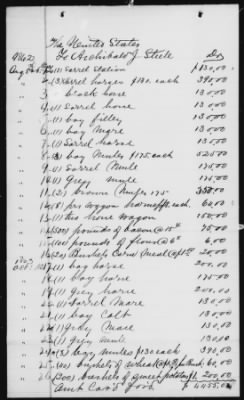 The United States
To Archibald J. Steele Dr
1862
Aug (1) Sorrel Stallion $ 130.00
2 (3) Sorrel horses $130. each 390.00
3 black horse 130.00
4 Sorrel horse 130.00
5 (1) bay filley 130.00
6 (1) bay Mare 130.00
7 (1) Sorrel horse 130.00
8 (3) bay Mules $175 each 525.00
9 (1) Sorrel Mule 175.00
10 (1) Grey Mule 175.00
11 (2) brown Mules 175 350.00
12 prs wagon harness each 60.00
13 (1) two horse wagon 150.00
14 (500) pounds of bacon @ 15 75.00
15 pounds of flour @ 6 6.00
16 Bushels Corn Meal 20.00
1863
Oct 17 (1) bay horse 200.00
18 (1) bay horse 175.00
19 (1) grey horse 200.00
20 (1) Sorrel Mare 130.00
21 (1) bay Colt 130.00
22 (1) Grey Mare 130.00
23 (1) grey mule 130.00
24 (3) bay mules $130 each 390.00
25 bushels of wheat 60.00
26 (200) bushels of sweet potatoes 200.00
Amt Car'd forw'd $ 4455.00